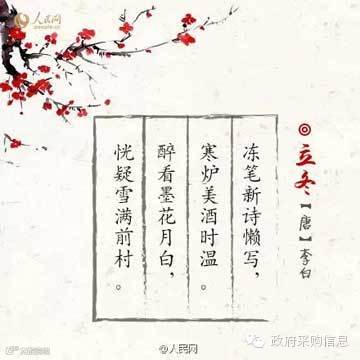 人民网
people.cn
立冬
【唐】李白
冻笔新诗懒写，
寒炉美酒时温。
醉看墨花月白，
恍疑雪满前村。
@人民网
政府采购信息